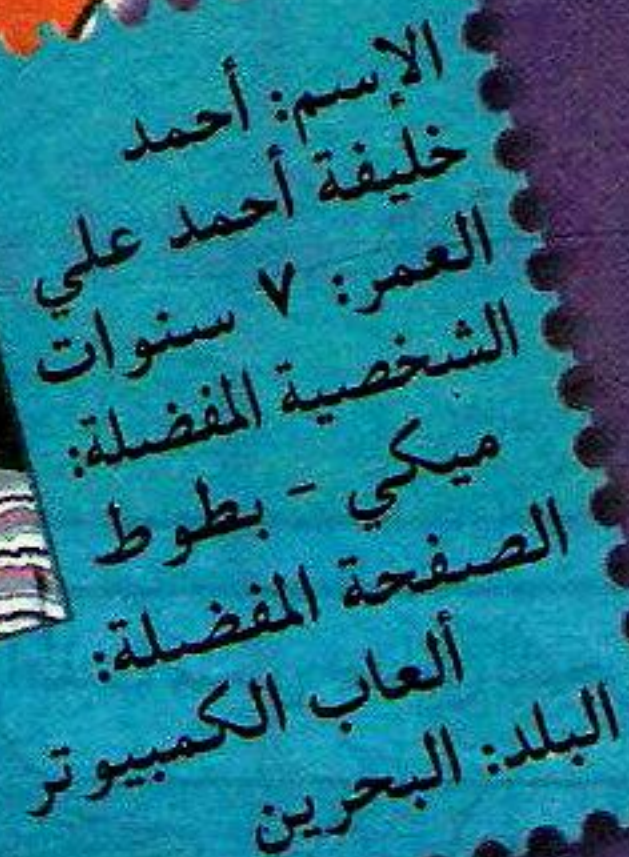 الإسم: أحمد
خليفة أحمد علي
العمر: ٧ سنوات
الشخصية المفضلة:
ميكي - بطوط
الصفحة المفضلة:
ألعاب الكمبيوتر
البلد: البحرين